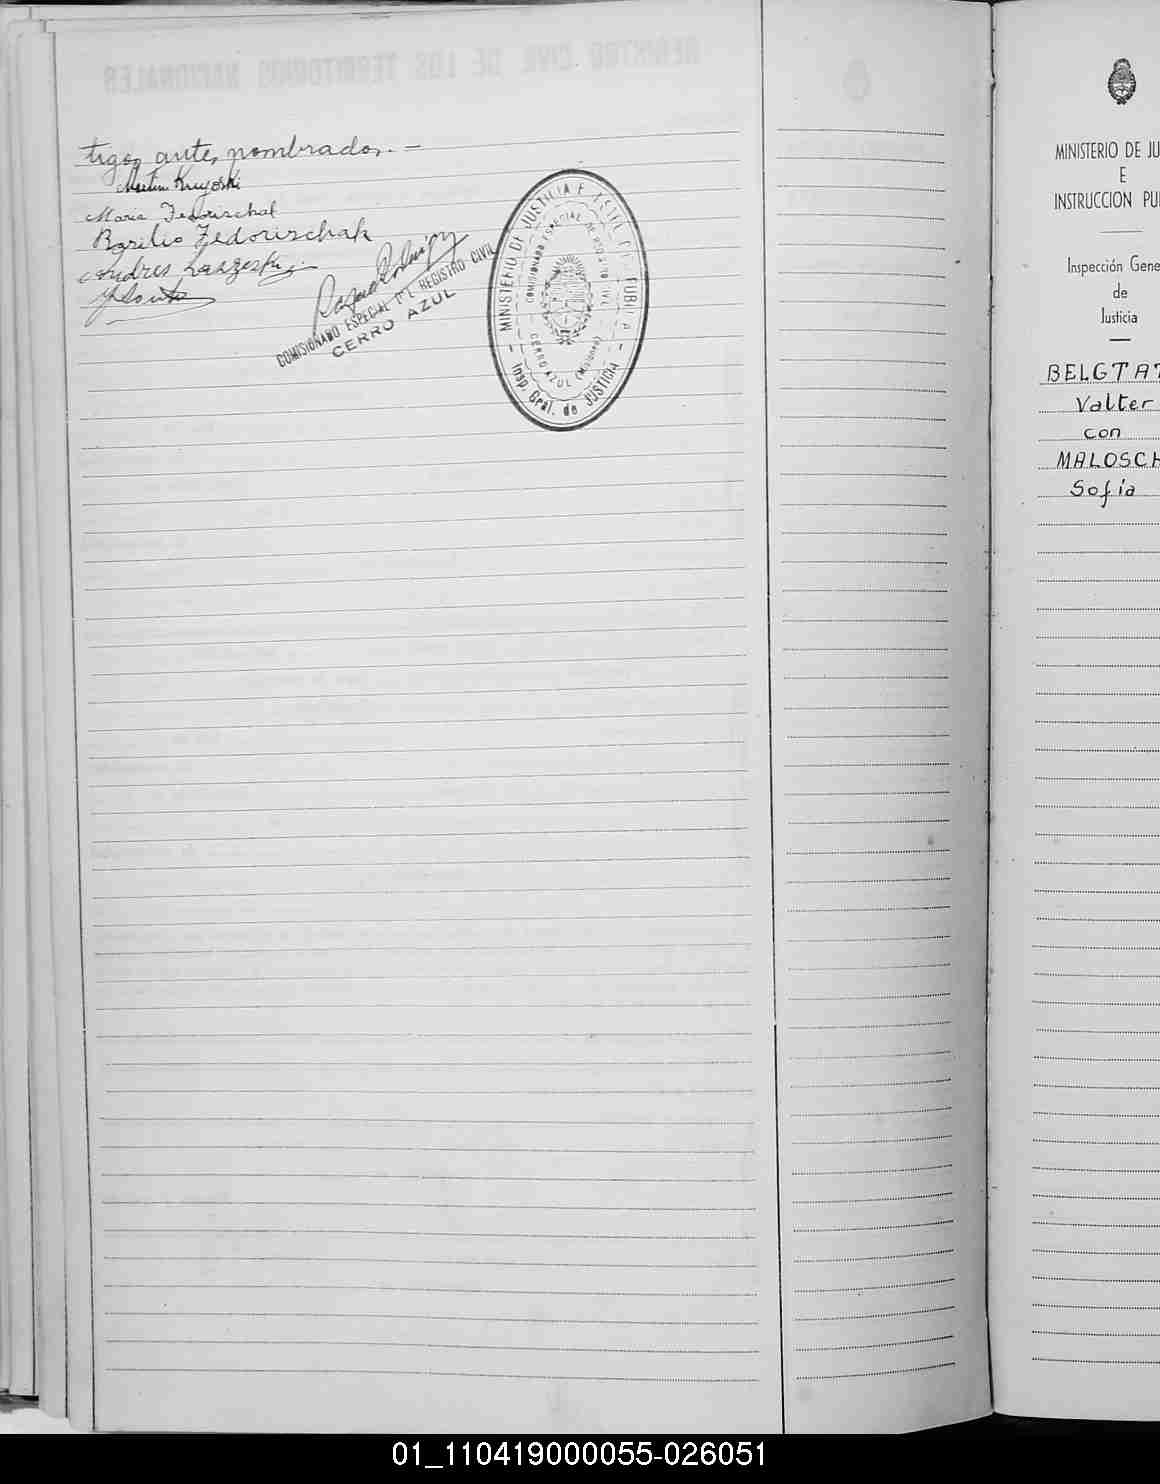 tigos antes nombrados. —
Martin
Maria Fedorischak
Basilio Fedorischak
Andres
COMISIONADO ESPECIAL DEL REGISTRO CIVIL
CERRO AZUL
MINISTERIO DE JUSTICIA E INST. PUBLICA
COMISIONADO ESPECIAL DE REGISTRO CIVIL
CERRO AZUL (Misiones)
Insp. Gral. de JUSTICIA
REGISTRO CIVIL DE LOS TERRITORIOS NACIONALES
MINISTERIO DE JU
E
INSTRUCCION PU
Inspección Gene
de
Justicia
BELGTAT
Valter
con
MALOSCH
Sofia
01_110419000055-026051